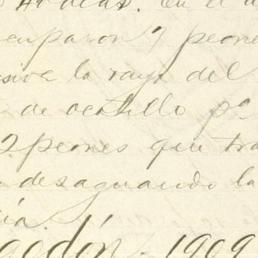 40 días. En el
ocuparon 7 peones
la raya del
de ocotillo pa
2 peones que tra
desaguando la
ía.
godón. 1909